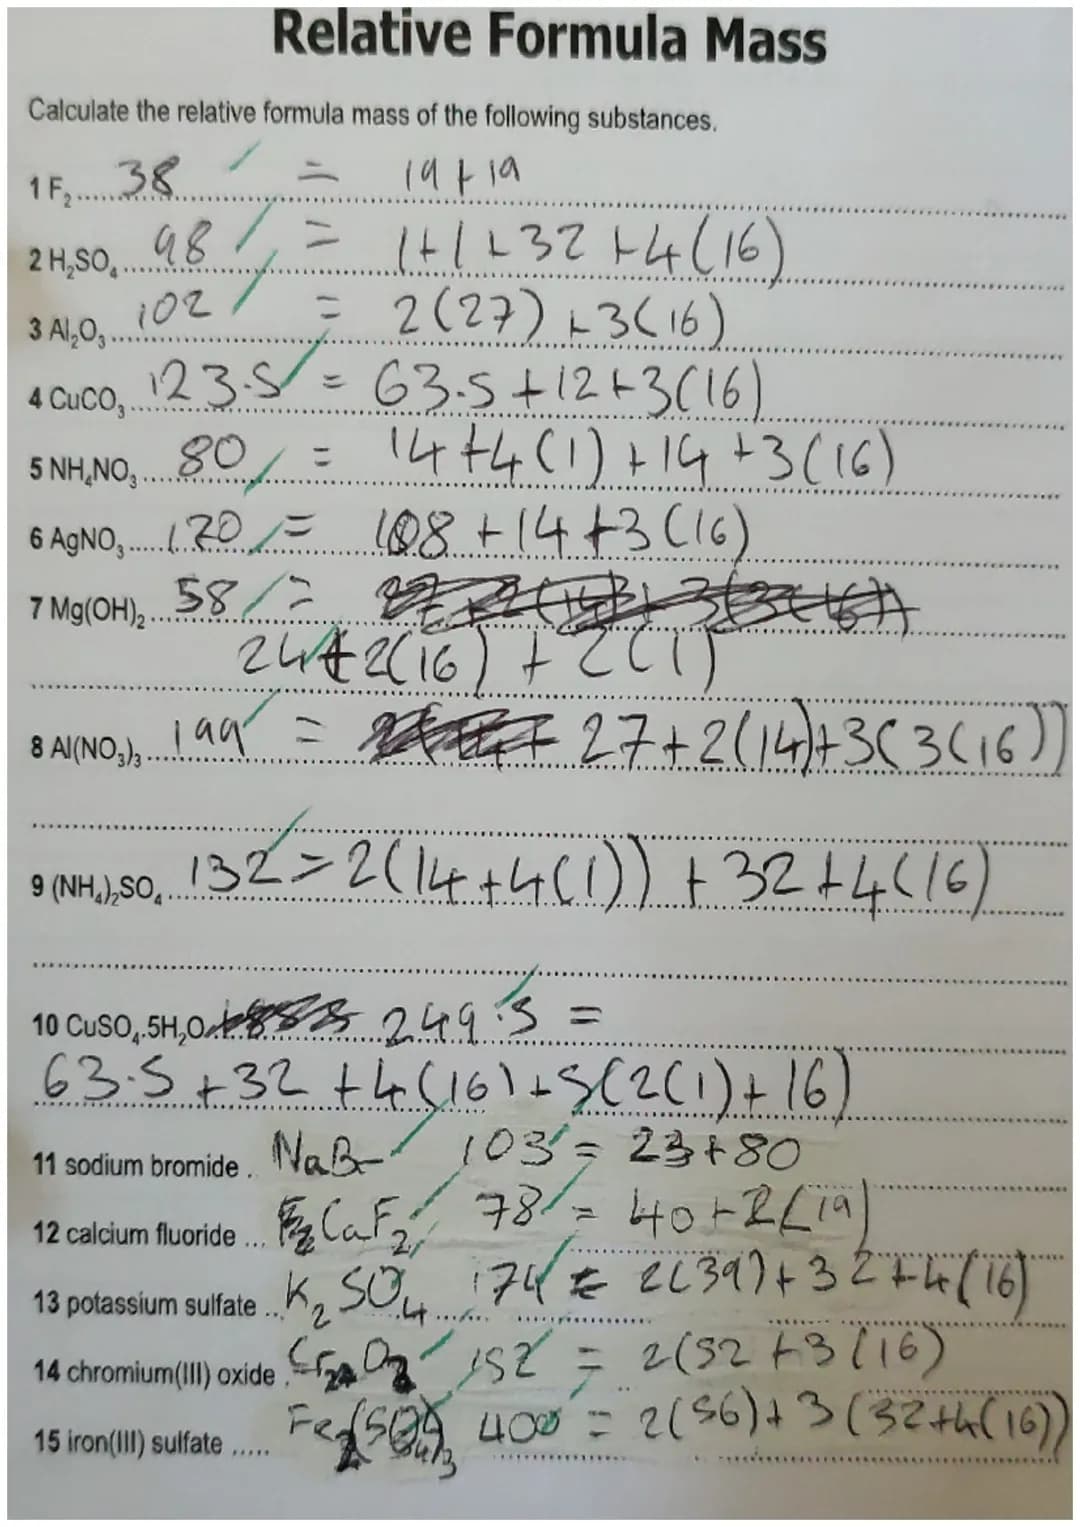 Relative Formula Mass
Calculate the relative formula mass of the following substances.
1 F₂ ..... 38 = 19 + 19
2 H₂SO₄ ..... 98 = 1+1+32+4(16)
3 Al₂O₃ ..... 102 = 2(27)+3(16)
4 CuCO₃ ..... 123.5 = 63.5+12+3(16)
5 NH₄NO₃ ..... 80 = 14+4(1)+14+3(16)
6 AgNO₃ ..... 170 = 108+14+3(16)
7 Mg(OH)₂ ..... 58 =
24+2(16)+2(1)
8 Al(NO₃)₃ ..... 199 = 27+2(14)+3(3(16))
9 (NH₄)₂SO₄ ..... 132 = 2(14+4(1))+32+4(16)
10 CuSO₄.5H₂O 249.5 =
63.5+32+4(16)+5(2(1)+16)
11 sodium bromide . NaBr 103 = 23+80
12 calcium fluoride ... CaF₂ 78 = 40+2(19)
13 potassium sulfate .. K₂SO₄ 174 = 2(39)+32+4(16)
14 chromium(III) oxide . Cr₂O₃ 152 = 2(52+3(16)
15 iron(III) sulfate ..... Fe₂(SO₄)₃ 400 = 2(56)+3(32+4(16))